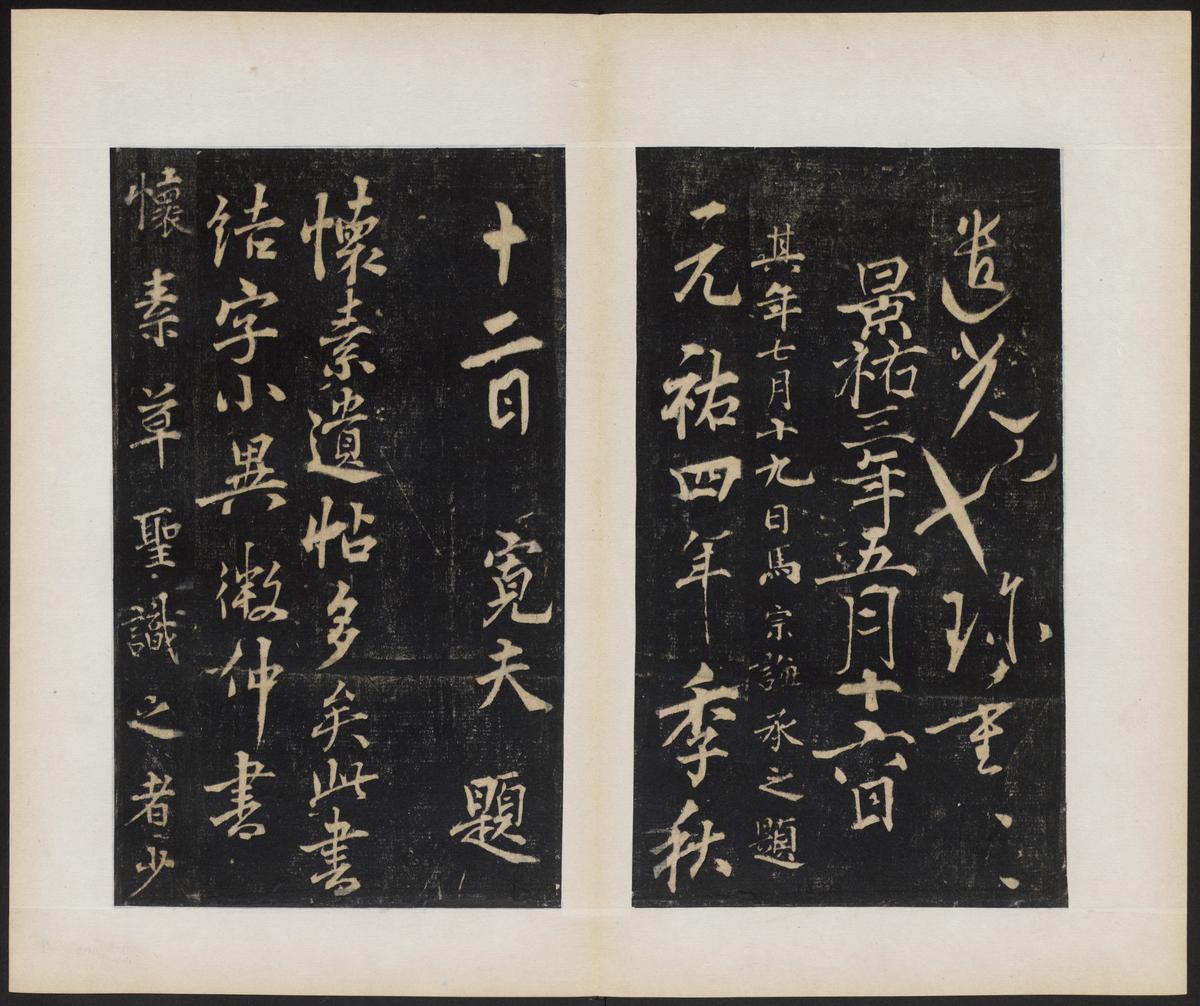 遺光八珎重〻
景祐三年五月十六日
其年七月十九日馬宗誨承之題
元祐四年季秋
十二日寛夫題
懷素遺帖多矣此書
結字小異微仲書
懷素草聖識之者少